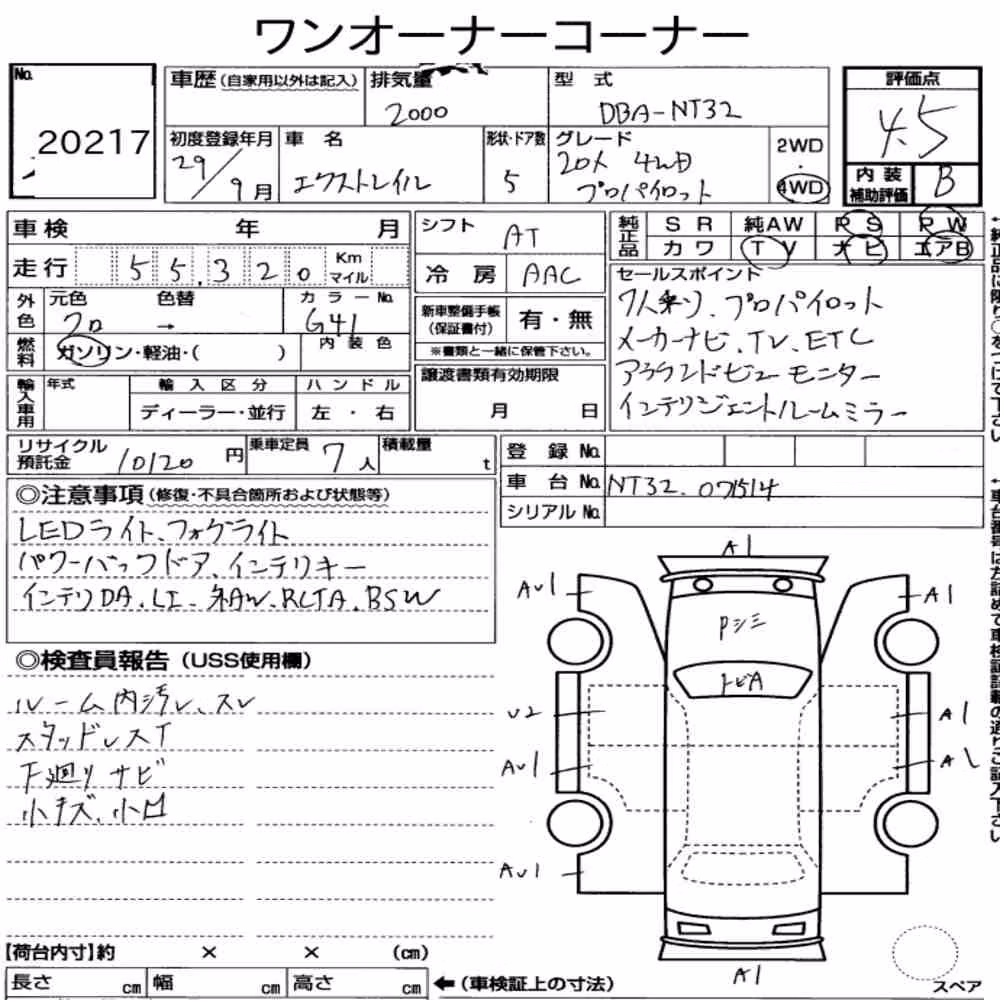 ワンオーナーコーナー
No. 20217
車歴 (自家用以外は記入)
排気量 2000
型式 DBA-NT32
評価点 4.5
内装補助評価 B
初度登録年月 29/9月
車名 エクストレイル
形状・ドア数 5
グレード 20X 4WD
プロパイロット
2WD
・
4WD
車検 年 月
走行 55,320 Km マイル
シフト AT
冷房 AAC
純正品 SR 純AW PS PW
カワ TV ナビ エアB
外色 元色 クロ 色替 → カラーNo. G41
燃料 ガソリン・軽油・( ) 内装色
新車整備手帳(保証書付) 有・無
※書類と一緒に保管下さい。
譲渡書類有効期限
月 日
セールスポイント
7人乗り、プロパイロット
メーカーナビ、TV、ETC
アラウンドビューモニター
インテリジェントルームミラー
輸入車用 年式 輸入区分 ハンドル
ディーラー・並行 左・右
リサイクル預託金 10120 円
乗車定員 7人
積載量 t
登録No.
車台No. NT32-071514
シリアルNo.
◎注意事項(修復・不具合箇所および状態等)
LEDライト、フォグライト
パワーバックドア、インテリキー
インテリDA、LI、純AW、RCTA、BSW
◎検査員報告(USS使用欄)
ルーム内汚レ、スレ
スタッドレスT
下廻りサビ
小キズ、小凹
A1
AU1
A1
Pシミ
トビA
U2
A1
AU1
A1
AU1
A1
【荷台内寸】約 × × (cm)
長さ cm 幅 cm 高さ cm ←(車検証上の寸法)
スペア